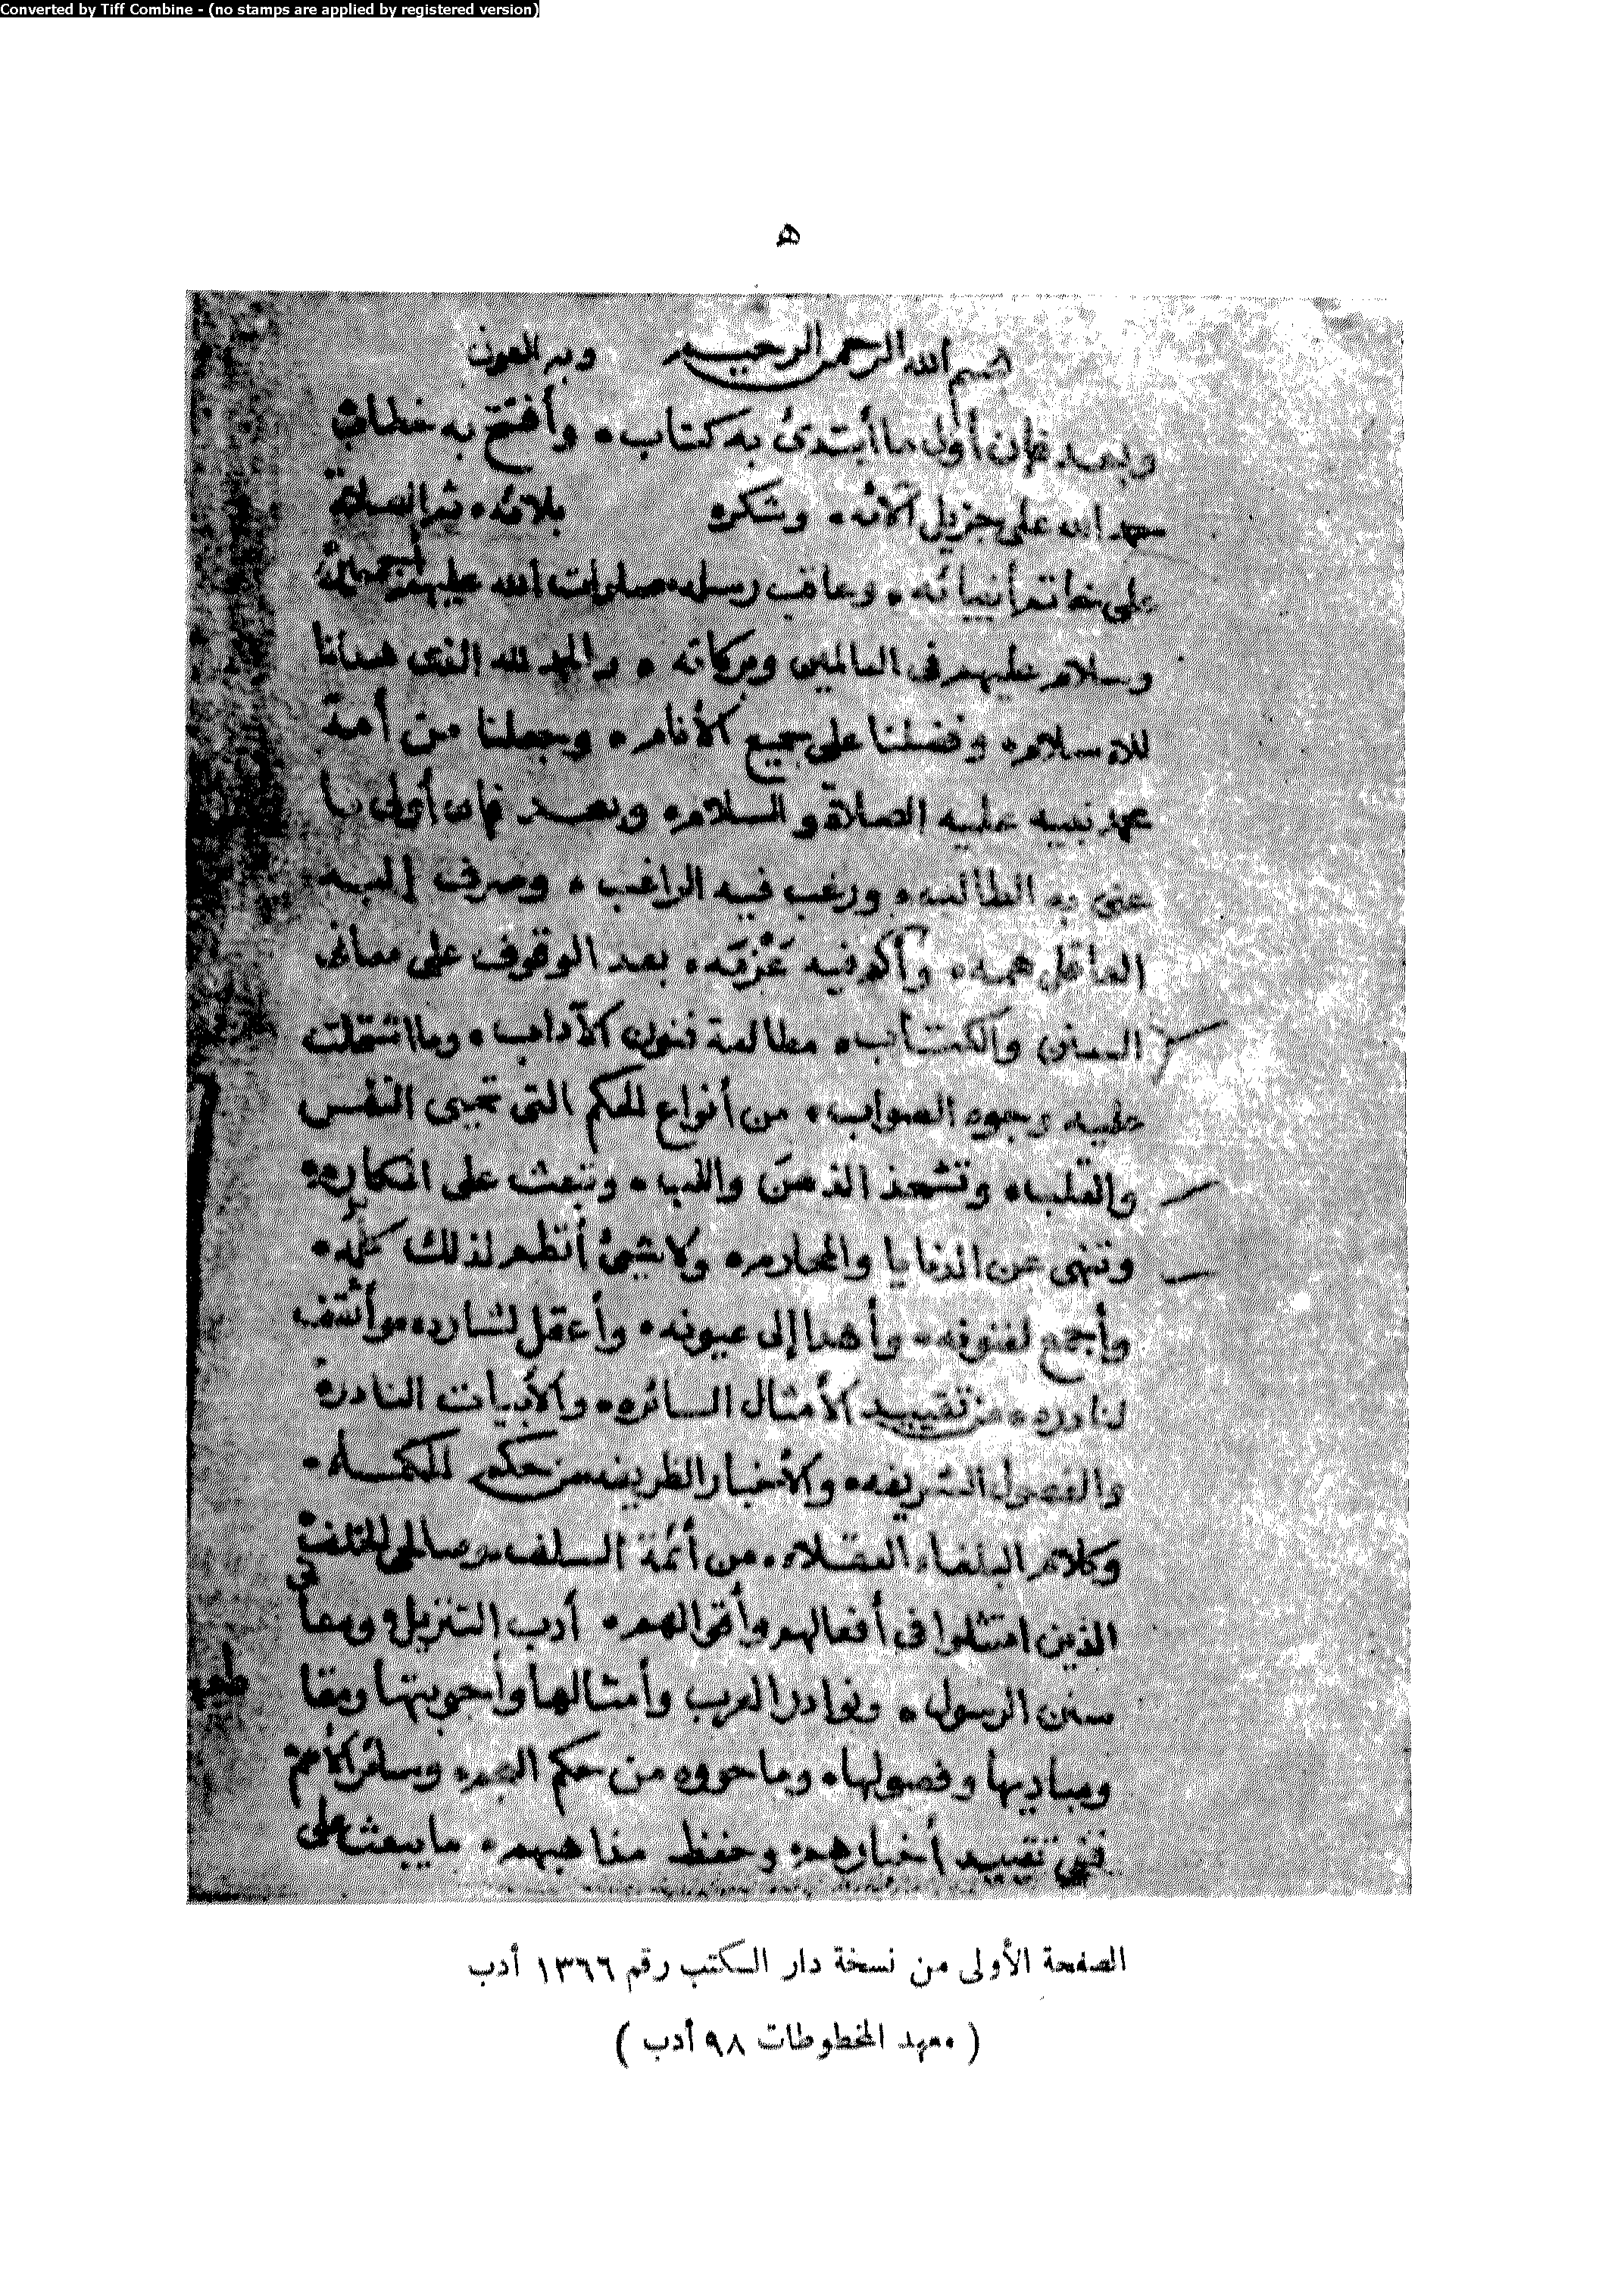 Converted by Tiff Combine - (no stamps are applied by registered version)
ه
بسم الله الرحمن الرحيم وبه العون
وبعد فإن أول ما أبتدئ به كتاب، وأفتتح به خطاب
حمد الله على جزيل آلائه، وشكره بلائه، ثم الصلاة
على خاتم أنبيائه، وعاقب رسله صلوات الله عليهم أجمعين
وسلام عليهم في العالمين وبركاته، والحمد لله الذي هدانا
للإسلام، وفضلنا على جميع الأنام، وجعلنا من أمة
محمد نبيه عليه الصلاة والسلام، وبعد فإن أولى ما
عني به الطالب، ورغب فيه الراغب، وصرف إليه
العاقل همه، وأكد فيه عَزْمَه، بعد الوقوف على معاني
السنن والكتاب، مطالعة فنون الآداب، وما اشتملت
عليه وجوه الصواب، من أنواع الحكم التي تحيي النفس
والقلب، وتشحذ الذهنَ واللب، وتبعث على المكارم،
وتنهى عن الدنايا والمحارم، ولا شيئ أنظم لذلك كله،
وأجمع لفنونه، وأهدا إلى عيونه، وأعقل لشارده، وأثقف
لنادره، من تقييد الأمثال السائره، والأبيات النادره
والفصول الشريفه، والأخبار الظريفه من حكم الحكماء،
وكلام البلغاء العقلاء، من أئمة السلف، وصالحي الخلف
الذين امتثلوا في أفعالهم وأقوالهم، أدب التنزيل، ومعاني
سنن الرسول، ونوادر العرب وأمثالها وأجوبتها ومقا
طعها
ومباديها وفصولها، وما حووه من حكم العجم، وسائر الأمم
ففي تقييد أخبارهم، وحفظ مذاهبهم، ما يبعث على
الصفحة الأولى من نسخة دار الكتب رقم ١٣٦٦ أدب
( معهد المخطوطات ٩٨ أدب )